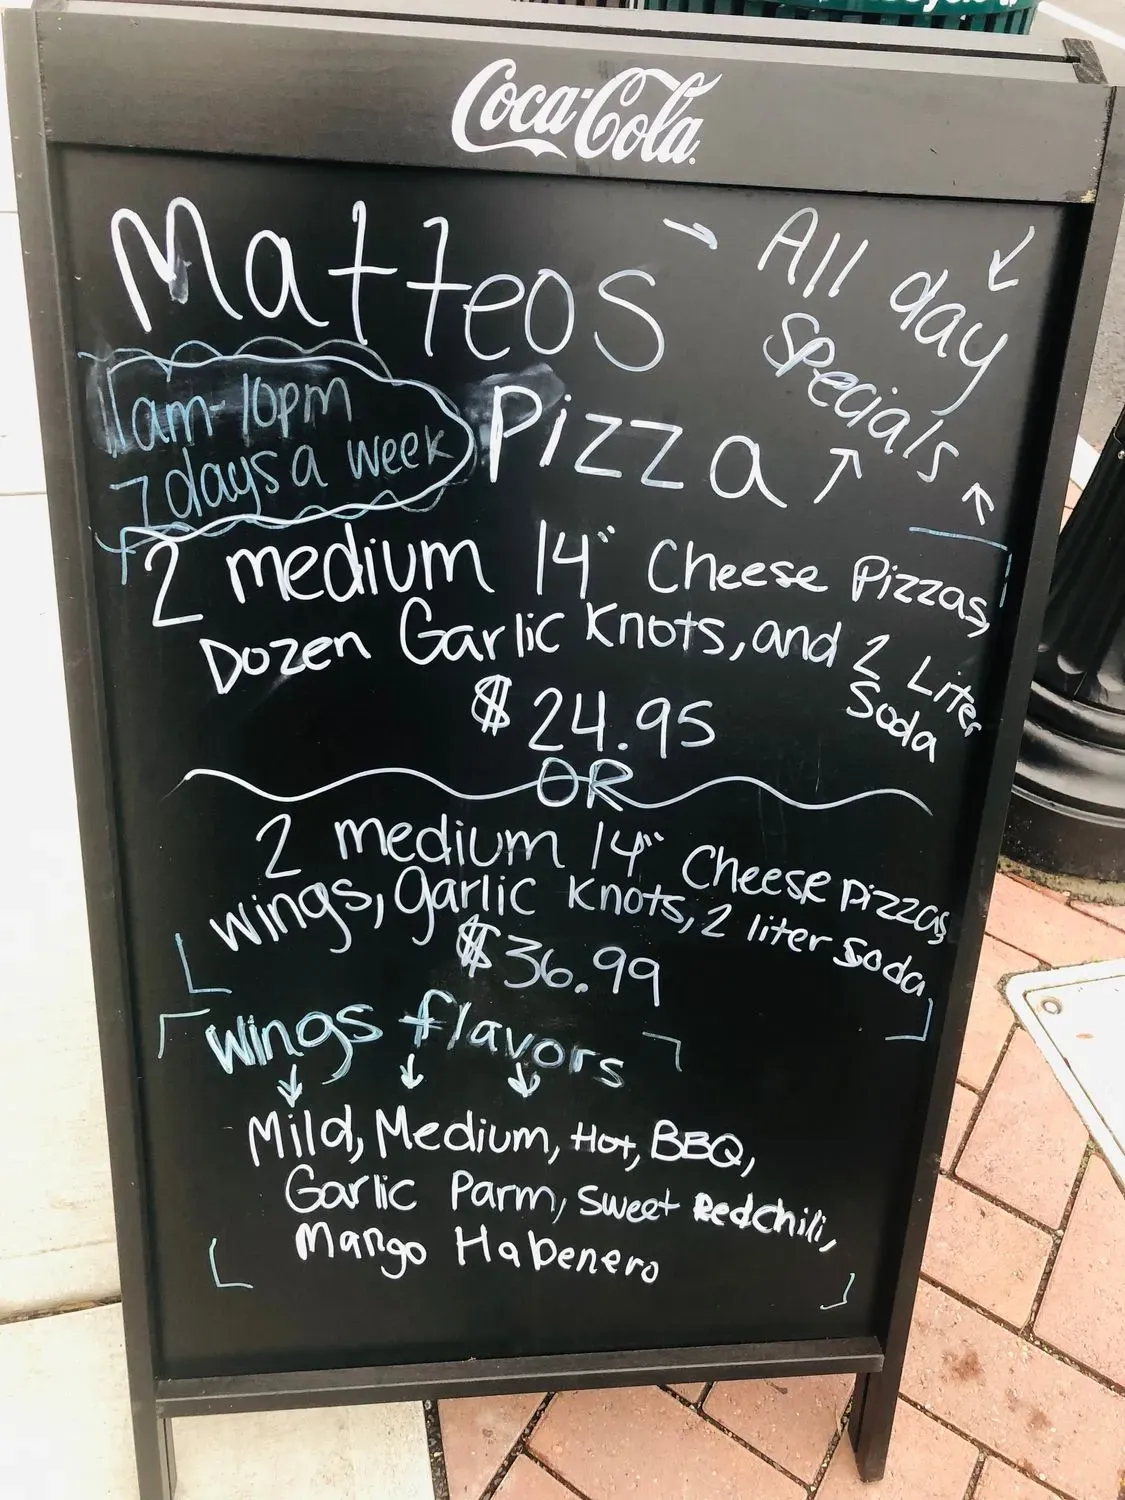 Coca-Cola
Matteos
All day
specials
11am-10pm
7 days a week
Pizza
2 medium 14" Cheese Pizzas,
Dozen Garlic Knots, and 2 Liter
Soda
$24.95
OR
2 medium 14" Cheese pizzas,
wings, garlic knots, 2 liter soda
$36.99
wings flavors
Mild, Medium, Hot, BBQ,
Garlic Parm, Sweet Redchili,
Mango Habenero